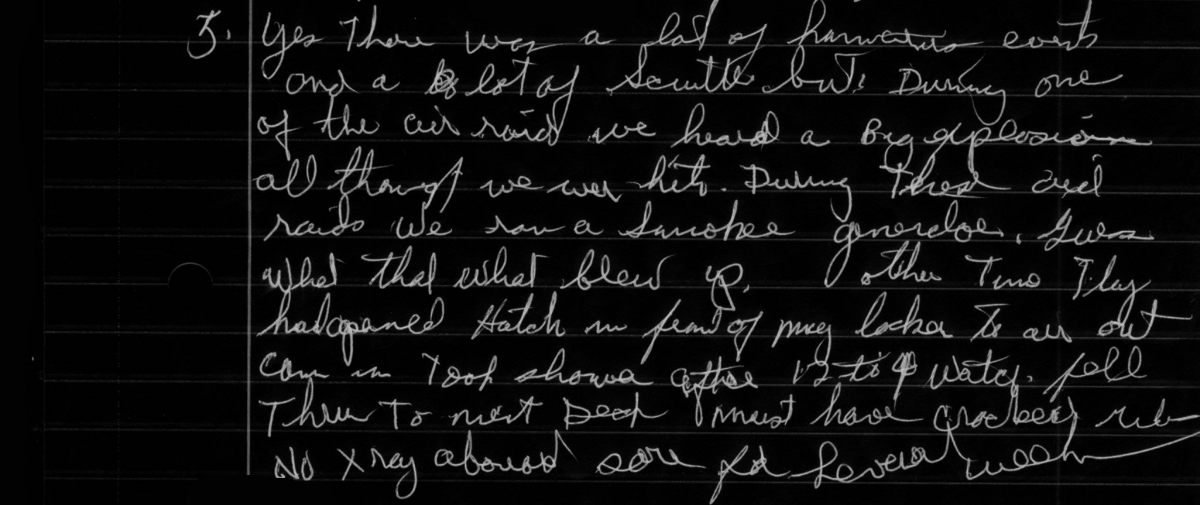 3. Yes There was a lot of humerus events
and a lot of Scuttle but. During one
of the air raid we heard a Big explosion
all thought we wer hit. During These air
raids we ran a Smokee generator. Guess
what that what blew up. other Time They
happened Hatch in front of my locker to air out
Cam in Took shower after 12 to 4 watch. fell
Thru To next Deck must have cracked rib
No X ray aboard sore for several week